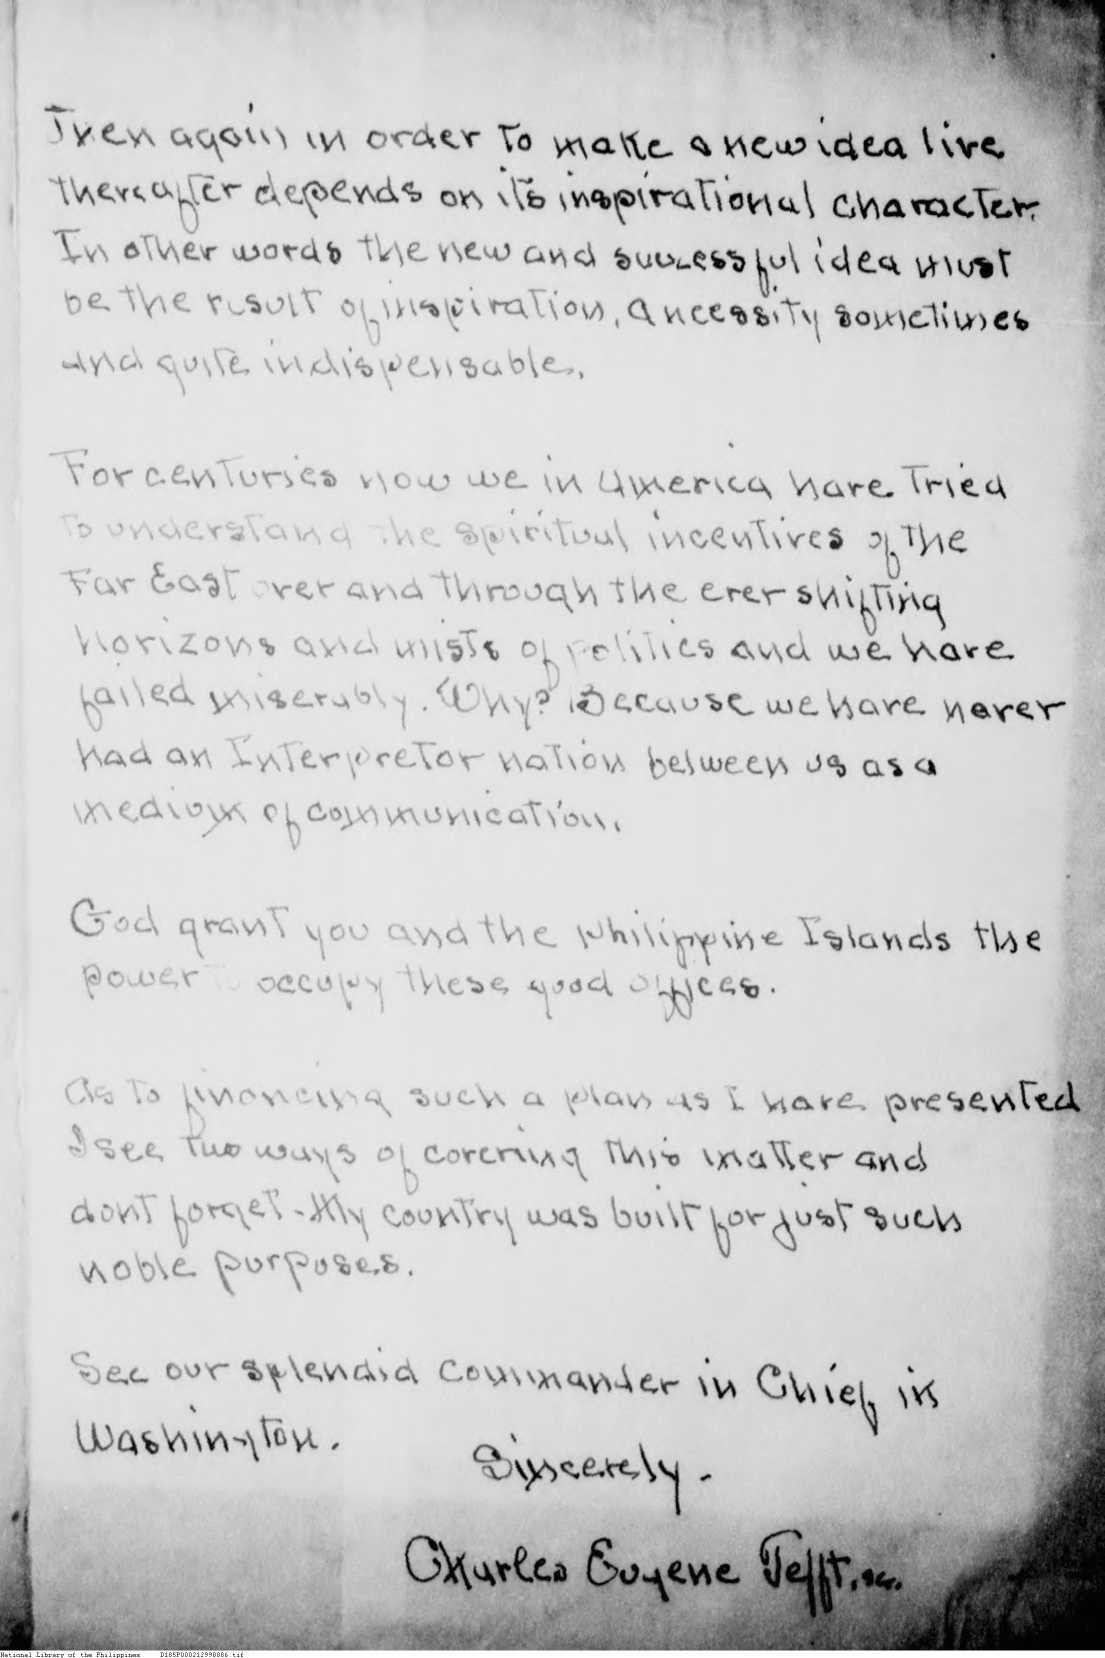 Then again in order to make a new idea live
thereafter depends on its inspirational character.
In other words the new and successful idea must
be the result of inspiration, a ncessity sometimes
and quite indispensable.
For centuries now we in America have tried
to understand the spiritual incentives of the
Far East over and through the ever shifting
horizons and mists of politics and we have
failed miserably. Why? Because we have never
had an Interpretor nation between us as a
medium of communication.
God grant you and the Philippine Islands the
power to occupy these good offices.
As to financing such a plan as I have presented
I see two ways of covering this matter and
dont forget - My country was built for just such
noble purposes.
See our splendid Commander in Chief in
Washington.
Sincerely.
Charles Eugene Tefft. sc.
National Library of the Philippines D185P000212990086.tif